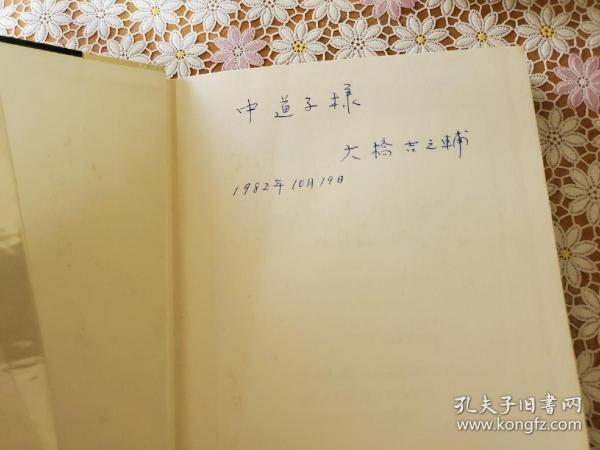 中道子様
大橋吉之輔
1982年10月19日
孔夫子旧书网
www.kongfz.com